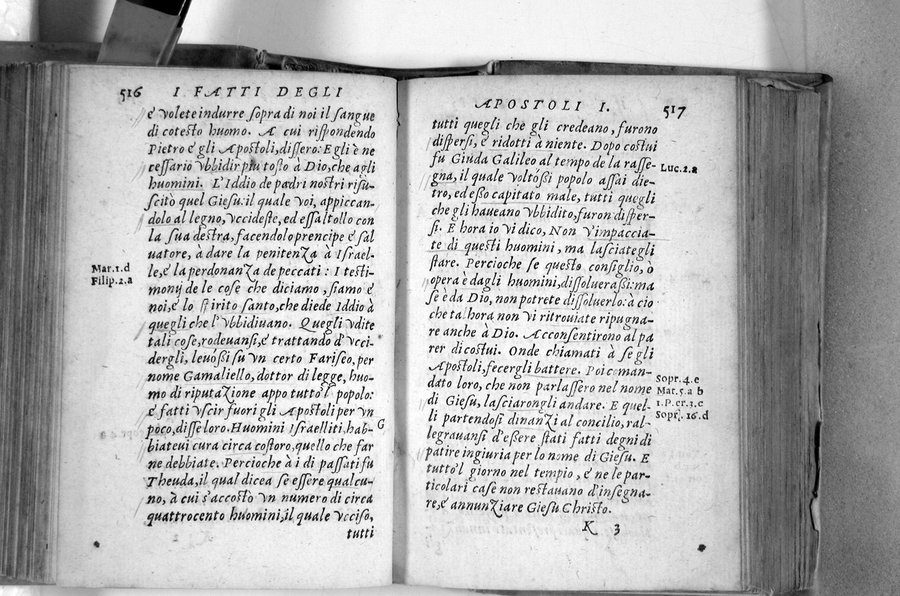 516 I FATTI DEGLI
è volete indurre sopra di noi il sangue
di cotesto huomo. A cui rispondendo
Pietro è gli Apostoli, dissero: Egli è ne
cessario vbbidir piu tosto à Dio, che agli
huomini. L'Iddio de padri nostri risu-
scitò quel Giesù: il quale voi, appiccan-
dolo al legno, vccideste, ed essaltollo con
la sua destra, facendolo prencipe è sal
uatore, a dare la penitenza à Israel-
le, è la perdonanza de peccati: I testi-
monij de le cose che diciamo, siamo è
noi, è lo spirito santo, che diede Iddio à
quegli che l'vbbidiuano. Quegli vdite
tali cose, rodeuansi, è trattando d'vcci-
dergli, leuossi su vn certo Fariseo, per
nome Gamaliello, dottor di legge, huo-
mo di riputazione appo tutto'l popolo:
è fatti vscir fuori gli Apostoli per vn
poco, disse loro. Huomini Israelliti, hab-
biateui cura circa costoro, quello che far
ne debbiate. Percioche à i di passati fu
Theuda, il qual dicea se essere qualcu-
no, à cui s'accostò vn numero di circa
quattrocento huomini, il quale vcciso,
tutti
Mar.1.d
Filip.2.a
G
APOSTOLI I. 517
tutti quegli che gli credeano, furono
dispersi, è ridotti à niente. Dopo costui
fu Giuda Galileo al tempo de la rasse-
gna, il quale voltòssi popolo assai die-
tro, ed esso capitato male, tutti quegli
che gli haueano vbbidito, furon disper-
si. E hora io vi dico, Non v'impaccia-
te di questi huomini, ma lasciategli
stare. Percioche se questo consiglio, ò
opera è dagli huomini, dissoluerassi: ma
se è da Dio, non potrete dissoluerlo: à cio
che talhora non vi ritrouiate ripugna-
re anche à Dio. Acconsentirono al pa
rer di costui. Onde chiamati à se gli
Apostoli, fecergli battere. Poi coman-
dato loro, che non parlassero nel nome
di Giesu, lasciarongli andare. E quel-
li partendosi dinanzi al concilio, ral-
legrauansi d'essere stati fatti degni di
patire ingiuria per lo nome di Giesu. E
tutto'l giorno nel tempio, è ne le par-
ticolari case non restauano d'insegna-
re, è annunziare Giesu Christo.
K 3
Luc.2.a
Sopr.4.e
Mat.5.a b
1.P.cr.3.c
Sopr.16.d